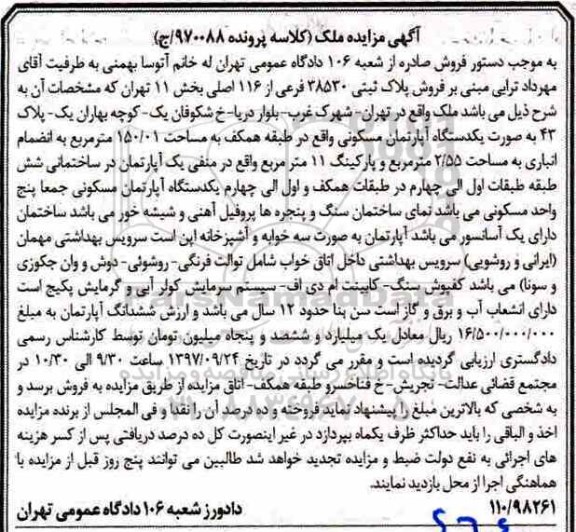 آگهی مزایده ملک (کلاسه پرونده ۹۷۰۰۸۸/ج)
به موجب دستور فروش صادره از شعبه ۱۰۶ دادگاه عمومی تهران له خانم آتوسا بهمنی به طرفیت آقای
مهرداد ترابی مبنی بر فروش پلاک ثبتی ۳۸۵۳۰ فرعی از ۱۱۶ اصلی بخش ۱۱ تهران که مشخصات آن به
شرح ذیل می باشد ملک واقع در تهران- شهرک غرب- بلوار دریا-خ شکوفان یک- کوچه بهاران یک- پلاک
۴۳ به صورت یکدستگاه آپارتمان مسکونی واقع در طبقه همکف به مساحت ۱۵۰/۰۱ مترمربع به انضمام
انباری به مساحت ۲/۵۵ مترمربع و پارکینگ ۱۱ متر مربع واقع در منفی یک آپارتمان در ساختمانی شش
طبقه طبقات اول الی چهارم در طبقات همکف و اول الی چهارم یکدستگاه آپارتمان مسکونی جمعا پنج
واحد مسکونی می باشد نمای ساختمان سنگ و پنجره ها پروفیل آهنی و شیشه خور می باشد ساختمان
دارای یک آسانسور می باشد آپارتمان به صورت سه خوابه و آشپزخانه اپن است سرویس بهداشتی مهمان
(ایرانی و روشویی) سرویس بهداشتی داخل اتاق خواب شامل توالت فرنگی- روشوئی- دوش و وان جکوزی
و سونا) می باشد کفپوش سنگ- کابینت ام دی اف- سیستم سرمایش کولر آبی و گرمایش پکیج است
دارای انشعاب آب و برق و گاز است سن بنا حدود ۱۲ سال می باشد و ارزش ششدانگ آپارتمان به مبلغ
۱۶/۵۰۰/۰۰۰/۰۰۰ ریال معادل یک میلیارد و ششصد و پنجاه میلیون تومان توسط کارشناس رسمی
دادگستری ارزیابی گردیده است و مقرر می گردد در تاریخ ۱۳۹۷/۰۹/۲۴ ساعت ۹/۳۰ الی ۱۰/۳۰ در
مجتمع قضائی عدالت- تجریش- خ فناخسرو طبقه همکف- اتاق مزایده از طریق مزایده به فروش برسد و
به شخصی که بالاترین مبلغ را پیشنهاد نماید فروخته و ده درصد آن را نقدا و فی المجلس از برنده مزایده
اخذ و الباقی را باید حداکثر ظرف یکماه بپردازد در غیر اینصورت کل ده درصد دریافتی پس از کسر هزینه
های اجرائی به نفع دولت ضبط و مزایده تجدید خواهد شد طالبین می توانند پنج روز قبل از مزایده با
هماهنگی اجرا از محل بازدید نمایند.
۱۱۰/۹۸۲۶۱ دادورز شعبه ۱۰۶ دادگاه عمومی تهران